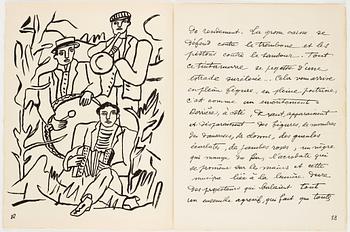 De rendement. La grosse caisse se
défend contre le trombone et les
pistons contre le tambour... Tout
ce tintamarre se projette d'une
estrade surélevée... Cela vous arrive
en pleine figure, en pleine poitrine,
c'est comme un envoûtement.
Derrière, à côté, devant, apparaissent
et disparaissent des figures, des membres,
des danseuses, des clowns, des gueules
écarlates, des jambes roses, un nègre
qui mange du feu, l'acrobate qui
se promène sur les mains et cette
musique liée à la lumière dure
des projecteurs qui balaient tout
un ensemble agressif, qui fait que toute
58